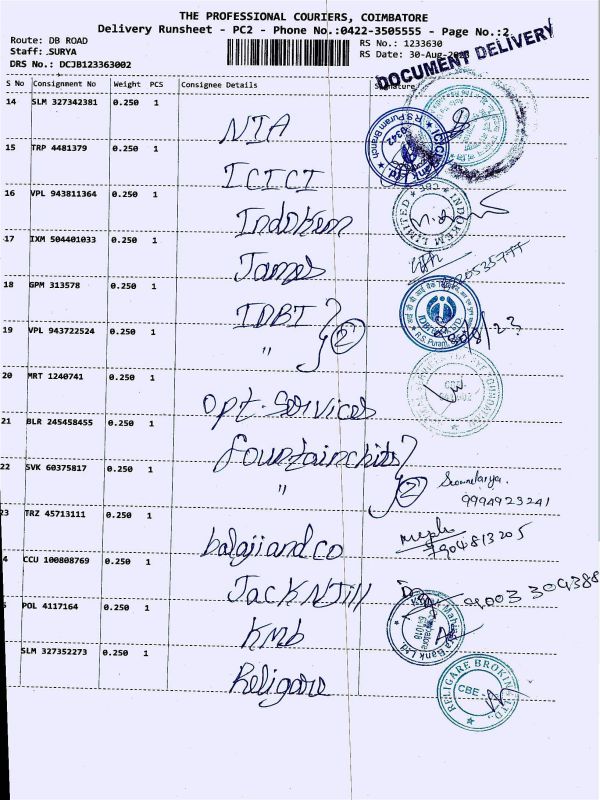 THE PROFESSIONAL COURIERS, COIMBATORE
Delivery Runsheet - PC2 - Phone No.:0422-3505555 - Page No.:2
Route: DB ROAD
RS No.: 1233630
Staff: SURYA
RS Date: 30-Aug-
DRS No.: DCJB123363002
DOCUMENT DELIVERY
S No Consignment No Weight PCS Consignee Details Signature
14 SLM 327342381 0.250 1 NIA
15 TRP 4481379 0.250 1 ICICI
ICICI Bank Ltd. R.S.Puram Branch
16 VPL 943811364 0.250 1 Indokem
INDOKEM LIMITED CBE
17 IXM 504401033 0.250 1 James
18 GPM 313578 0.250 1 IDBI
R.S. Puram
30/8/23
19 VPL 943722524 0.250 1 " 2
20 MRT 1240741 0.250 1 opt. Services
21 BLR 245458455 0.250 1 fountainchits
22 SVK 60375817 0.250 1 " 2
9994923241
23 TRZ 45713111 0.250 1 balajiandco
7904813205
4 CCU 100808769 0.250 1 Jack N Jill
5 POL 4117164 0.250 1 KMB
Mahindra Bank Ltd.
SLM 327352273 0.250 1 Religare
RELIGARE BROKING LTD. CBE